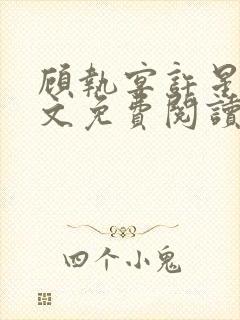 顾執宴許星
文免費閱讀
四个小鬼